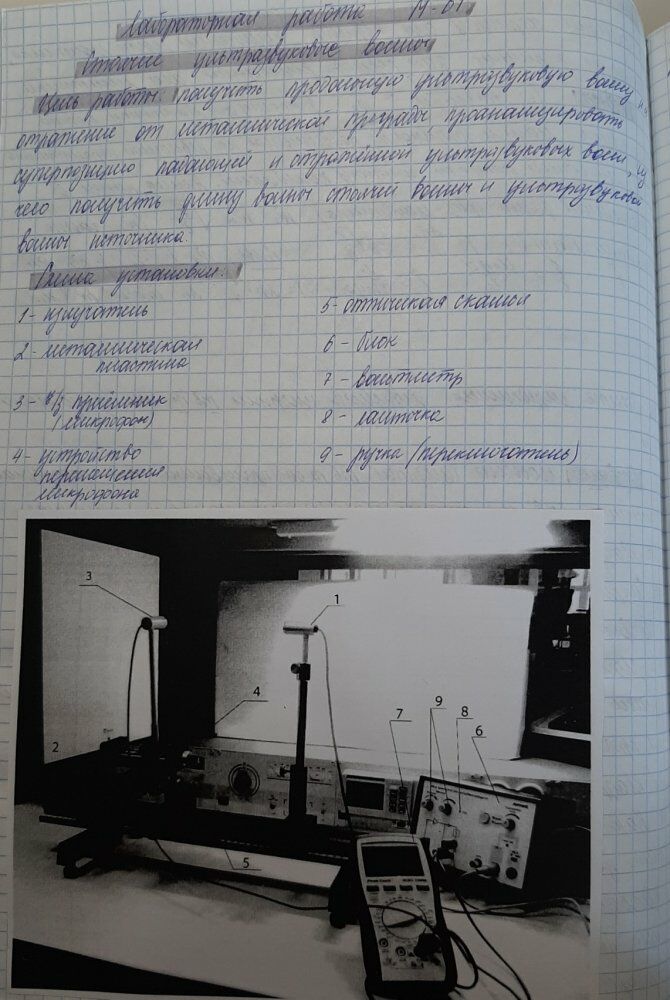 Лабораторная работа М-61
Стоячие ультразвуковые волны
Цель работы: получить продольную ультразвуковую волну и
отражение от металлической преграды, проанализировать
суперпозицию падающей и отражённой ультразвуковых волн, из
чего получить длину волны стоячей волны и ультразвуковой
волны источника.
Схема установки:
1- излучатель
2- металлическая
пластина
3- у/з приёмник
(микрофон)
4- устройство
перемещения
микрофона
5- оптическая скамья
6- блок
7- вольтметр
8- лампочка
9- ручка (переключатель)
3
1
4
2
7
9
8
6
5